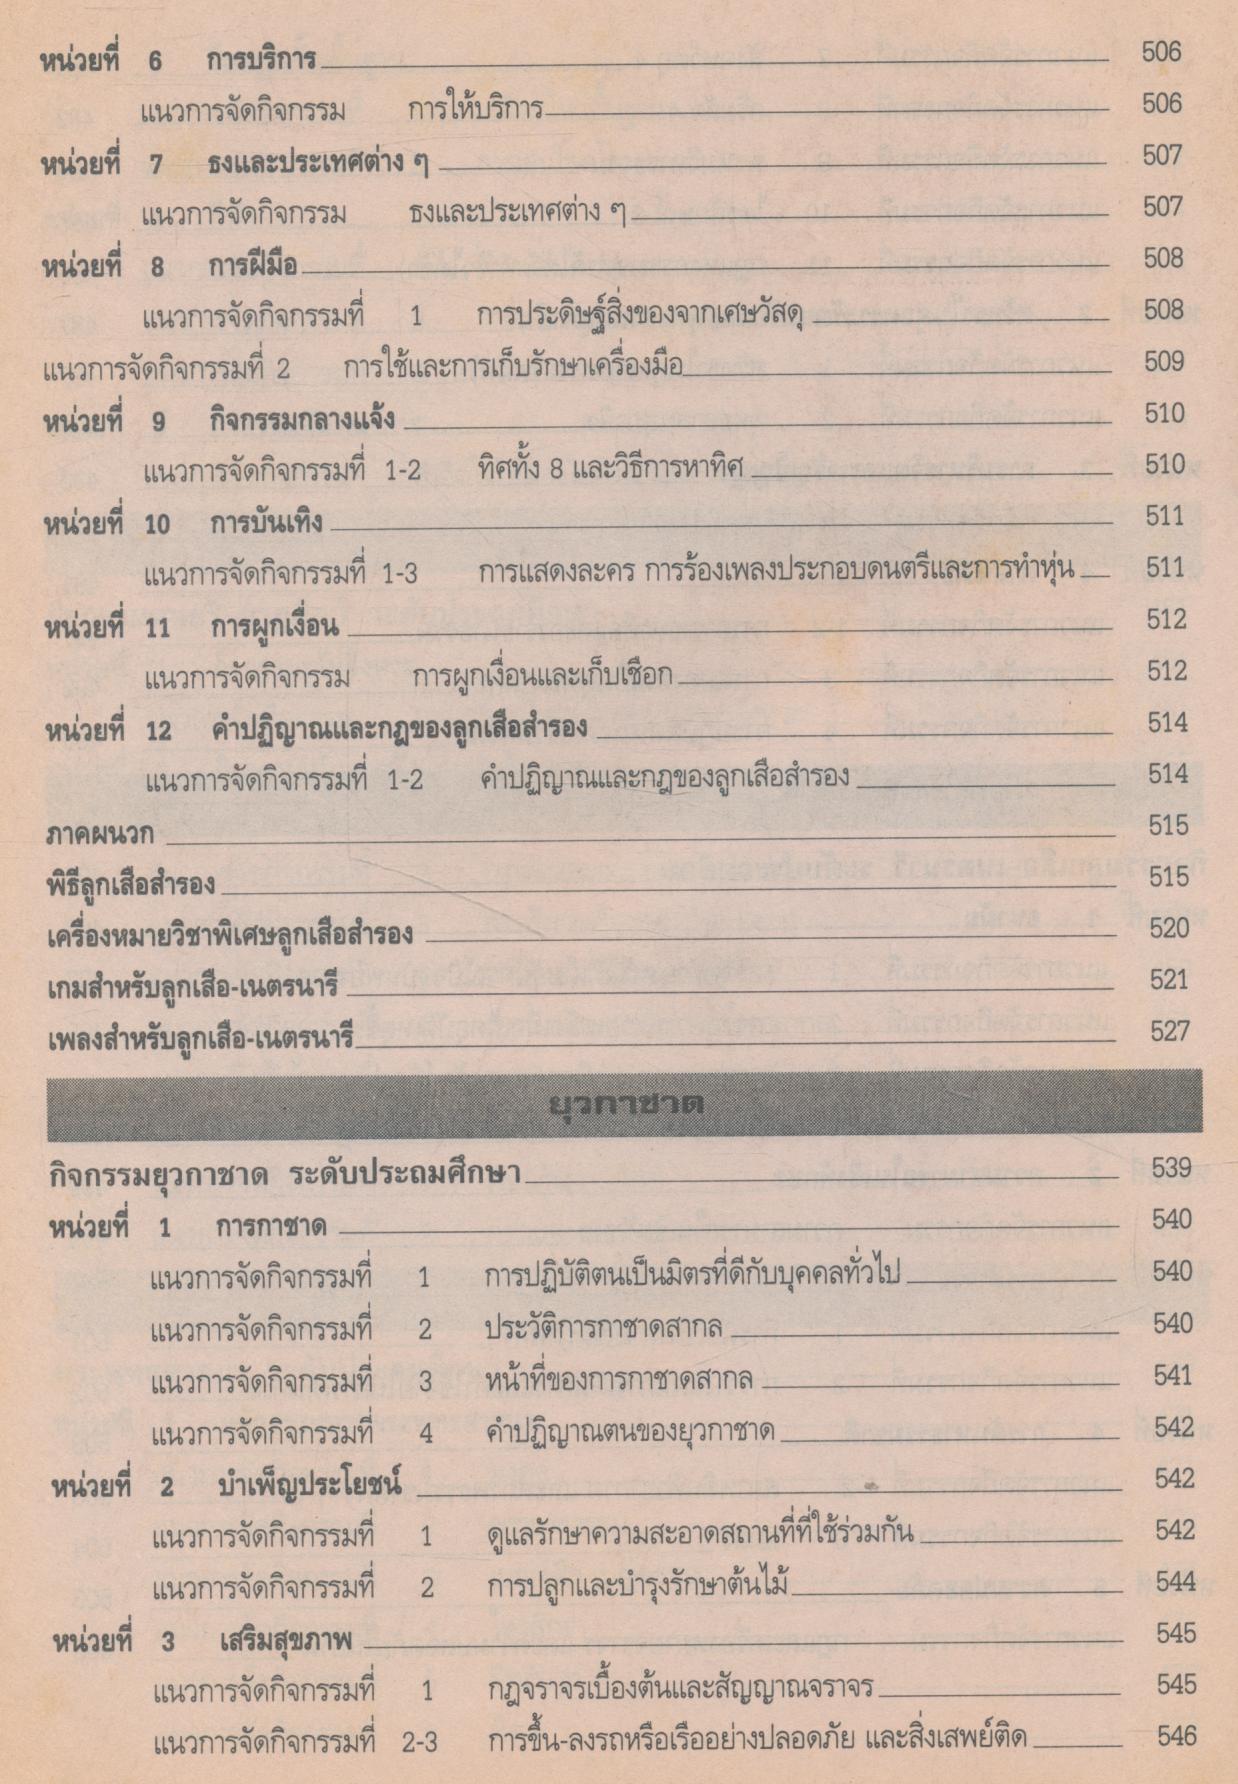 หน่วยที่ 6 การบริการ 506
แนวการจัดกิจกรรม การให้บริการ 506
หน่วยที่ 7 ธงและประเทศต่าง ๆ 507
แนวการจัดกิจกรรม ธงและประเทศต่าง ๆ 507
หน่วยที่ 8 การฝีมือ 508
แนวการจัดกิจกรรมที่ 1 การประดิษฐ์สิ่งของจากเศษวัสดุ 508
แนวการจัดกิจกรรมที่ 2 การใช้และการเก็บรักษาเครื่องมือ 509
หน่วยที่ 9 กิจกรรมกลางแจ้ง 510
แนวการจัดกิจกรรมที่ 1-2 ทิศทั้ง 8 และวิธีการหาทิศ 510
หน่วยที่ 10 การบันเทิง 511
แนวการจัดกิจกรรมที่ 1-3 การแสดงละคร การร้องเพลงประกอบดนตรีและการทำหุ่น 511
หน่วยที่ 11 การผูกเงื่อน 512
แนวการจัดกิจกรรม การผูกเงื่อนและเก็บเชือก 512
หน่วยที่ 12 คำปฏิญาณและกฎของลูกเสือสำรอง 514
แนวการจัดกิจกรรมที่ 1-2 คำปฏิญาณและกฎของลูกเสือสำรอง 514
ภาคผนวก 515
พิธีลูกเสือสำรอง 515
เครื่องหมายวิชาพิเศษลูกเสือสำรอง 520
เกมสำหรับลูกเสือ-เนตรนารี 521
เพลงสำหรับลูกเสือ-เนตรนารี 527
ยุวกาชาด
กิจกรรมยุวกาชาด ระดับประถมศึกษา 539
หน่วยที่ 1 การกาชาด 540
แนวการจัดกิจกรรมที่ 1 การปฏิบัติตนเป็นมิตรที่ดีกับบุคคลทั่วไป 540
แนวการจัดกิจกรรมที่ 2 ประวัติการกาชาดสากล 540
แนวการจัดกิจกรรมที่ 3 หน้าที่ของการกาชาดสากล 541
แนวการจัดกิจกรรมที่ 4 คำปฏิญาณตนของยุวกาชาด 542
หน่วยที่ 2 บำเพ็ญประโยชน์ 542
แนวการจัดกิจกรรมที่ 1 ดูแลรักษาความสะอาดสถานที่ที่ใช้ร่วมกัน 542
แนวการจัดกิจกรรมที่ 2 การปลูกและบำรุงรักษาต้นไม้ 544
หน่วยที่ 3 เสริมสุขภาพ 545
แนวการจัดกิจกรรมที่ 1 กฎจราจรเบื้องต้นและสัญญาณจราจร 545
แนวการจัดกิจกรรมที่ 2-3 การขึ้น-ลงรถหรือเรืออย่างปลอดภัย และสิ่งเสพย์ติด 546